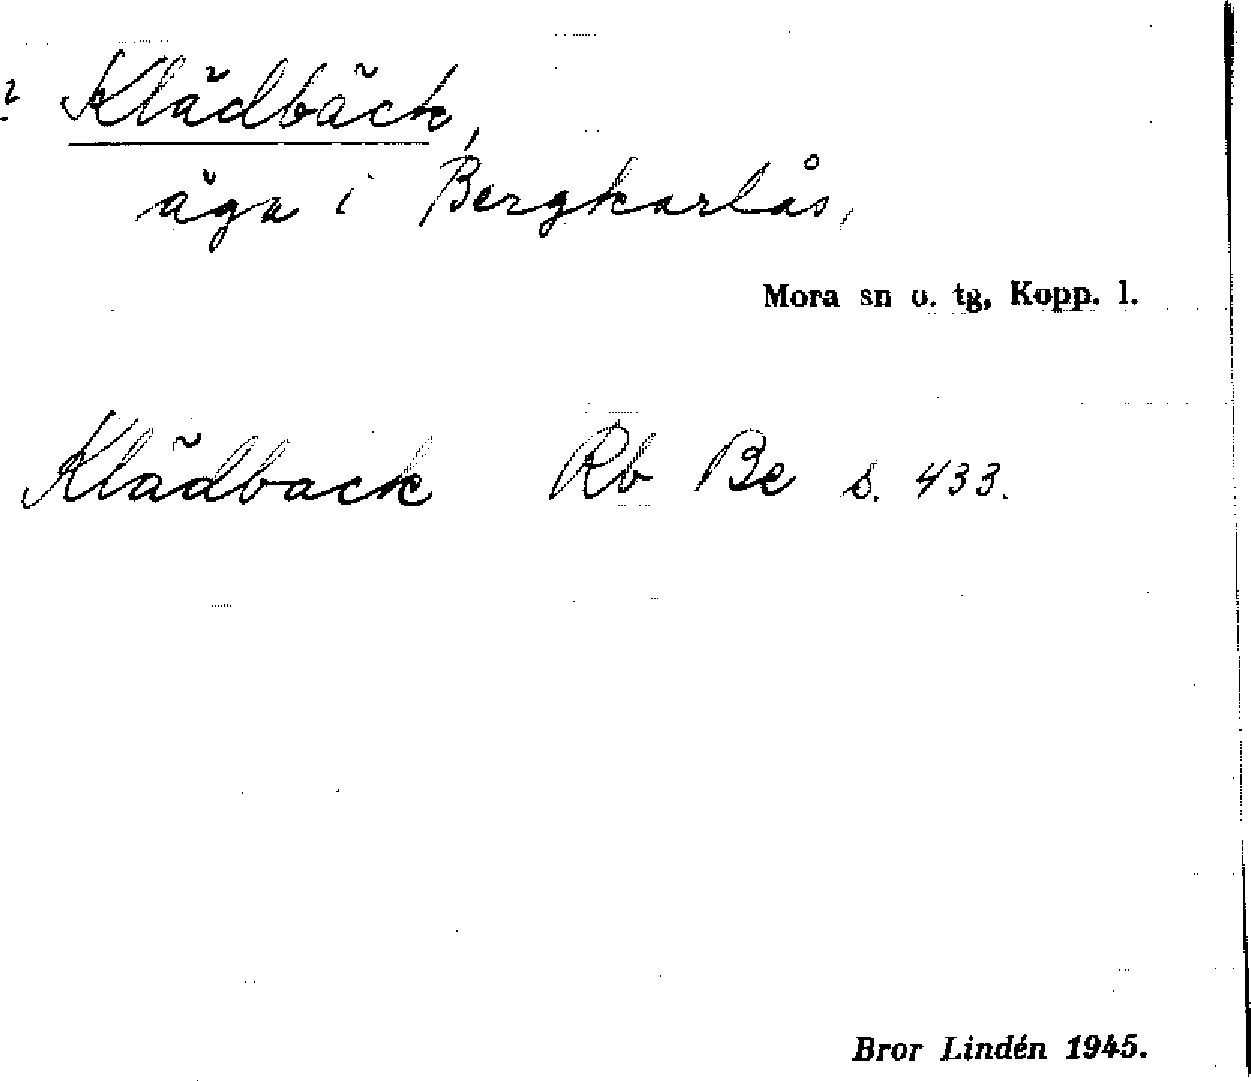 ? Klädbäck,
äga i Bergkarlås,
Mora sn o. tg, Kopp. l.
Klädback Rb Be s. 433.
Bror Lindén 1945.